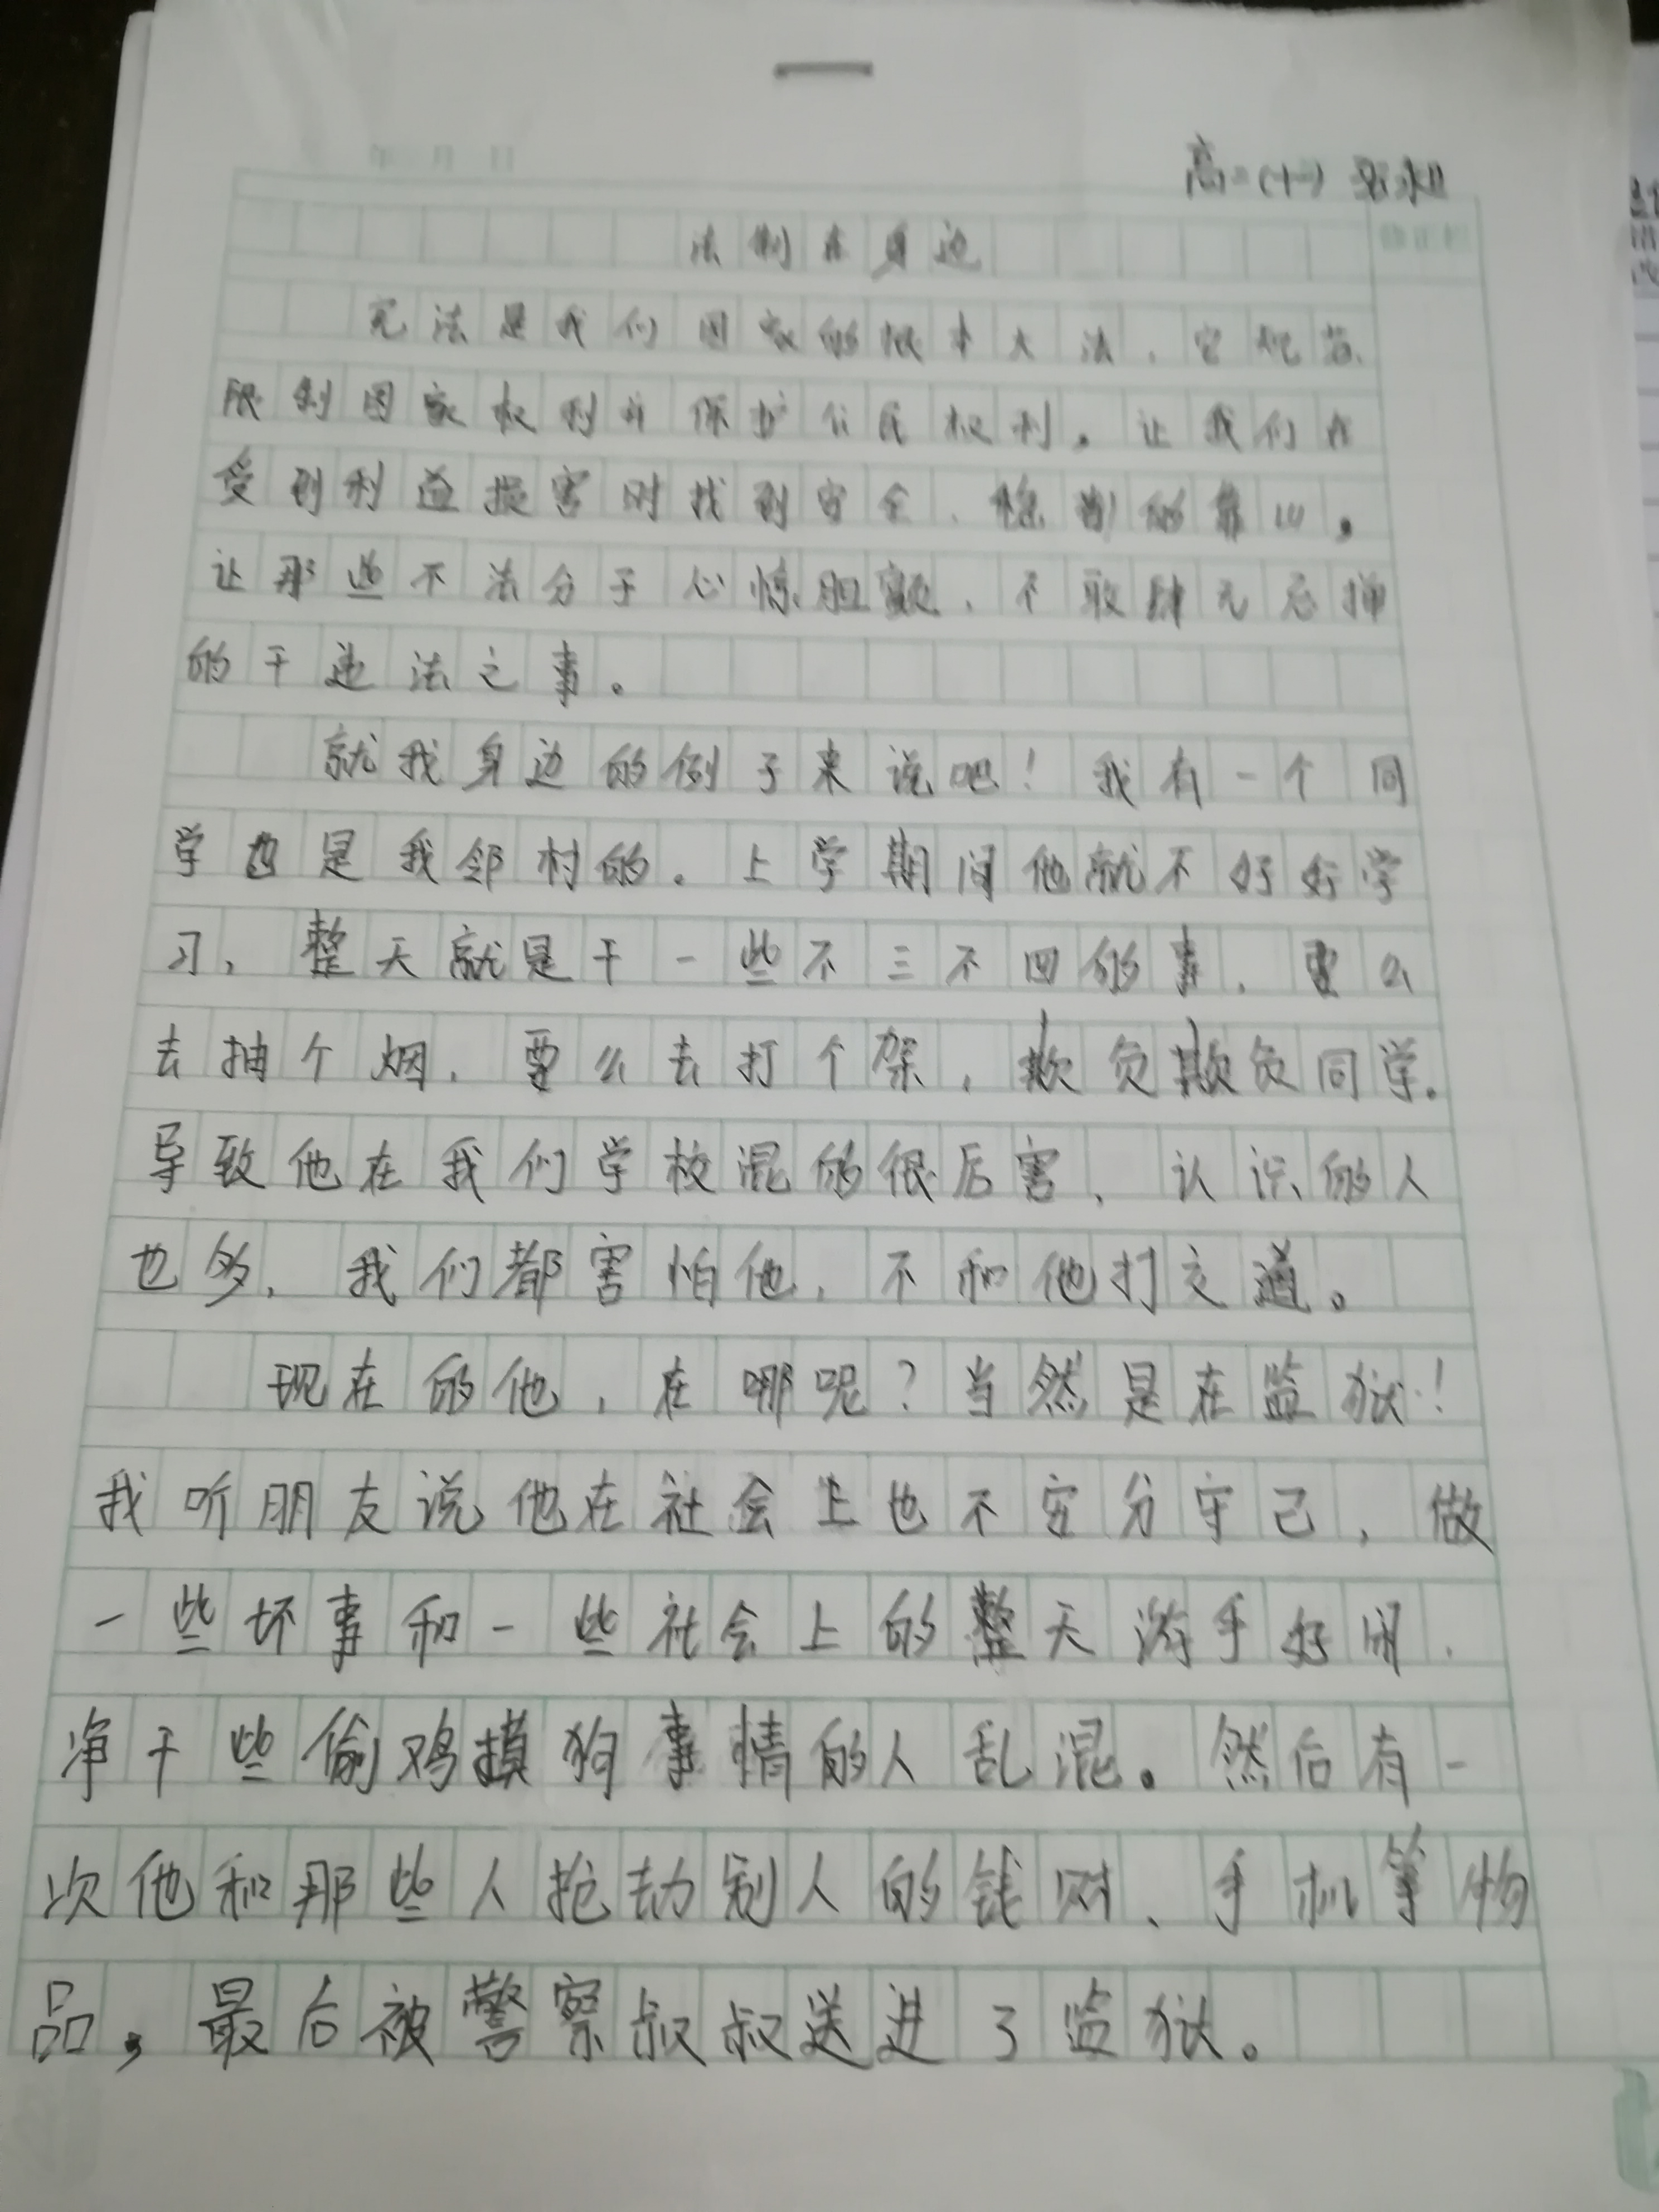 年 月 日
高二(十一)
法制在身边
宪法是我们国家的根本大法，它规范、
限制国家权利并保护公民权利。让我们在
受到利益损害时找到安全、稳当的靠山。
让那些不法分子心惊胆颤，不敢肆无忌掸
的干违法之事。
就我身边的例子来说吧！我有一个同
学也是我邻村的。上学期间他就不好好学
习，整天就是干一些不三不四的事，要么
去抽个烟，要么去打个架，欺负欺负同学。
导致他在我们学校混的很厉害，认识的人
也多，我们都害怕他，不和他打交道。
现在的他，在哪呢？当然是在监狱！
我听朋友说他在社会上也不安分守己，做
一些坏事和一些社会上的整天游手好闲，
净干些偷鸡摸狗事情的人乱混。然后有一
次他和那些人抢劫别人的钱财、手机等物
品，最后被警察叔叔送进了监狱。